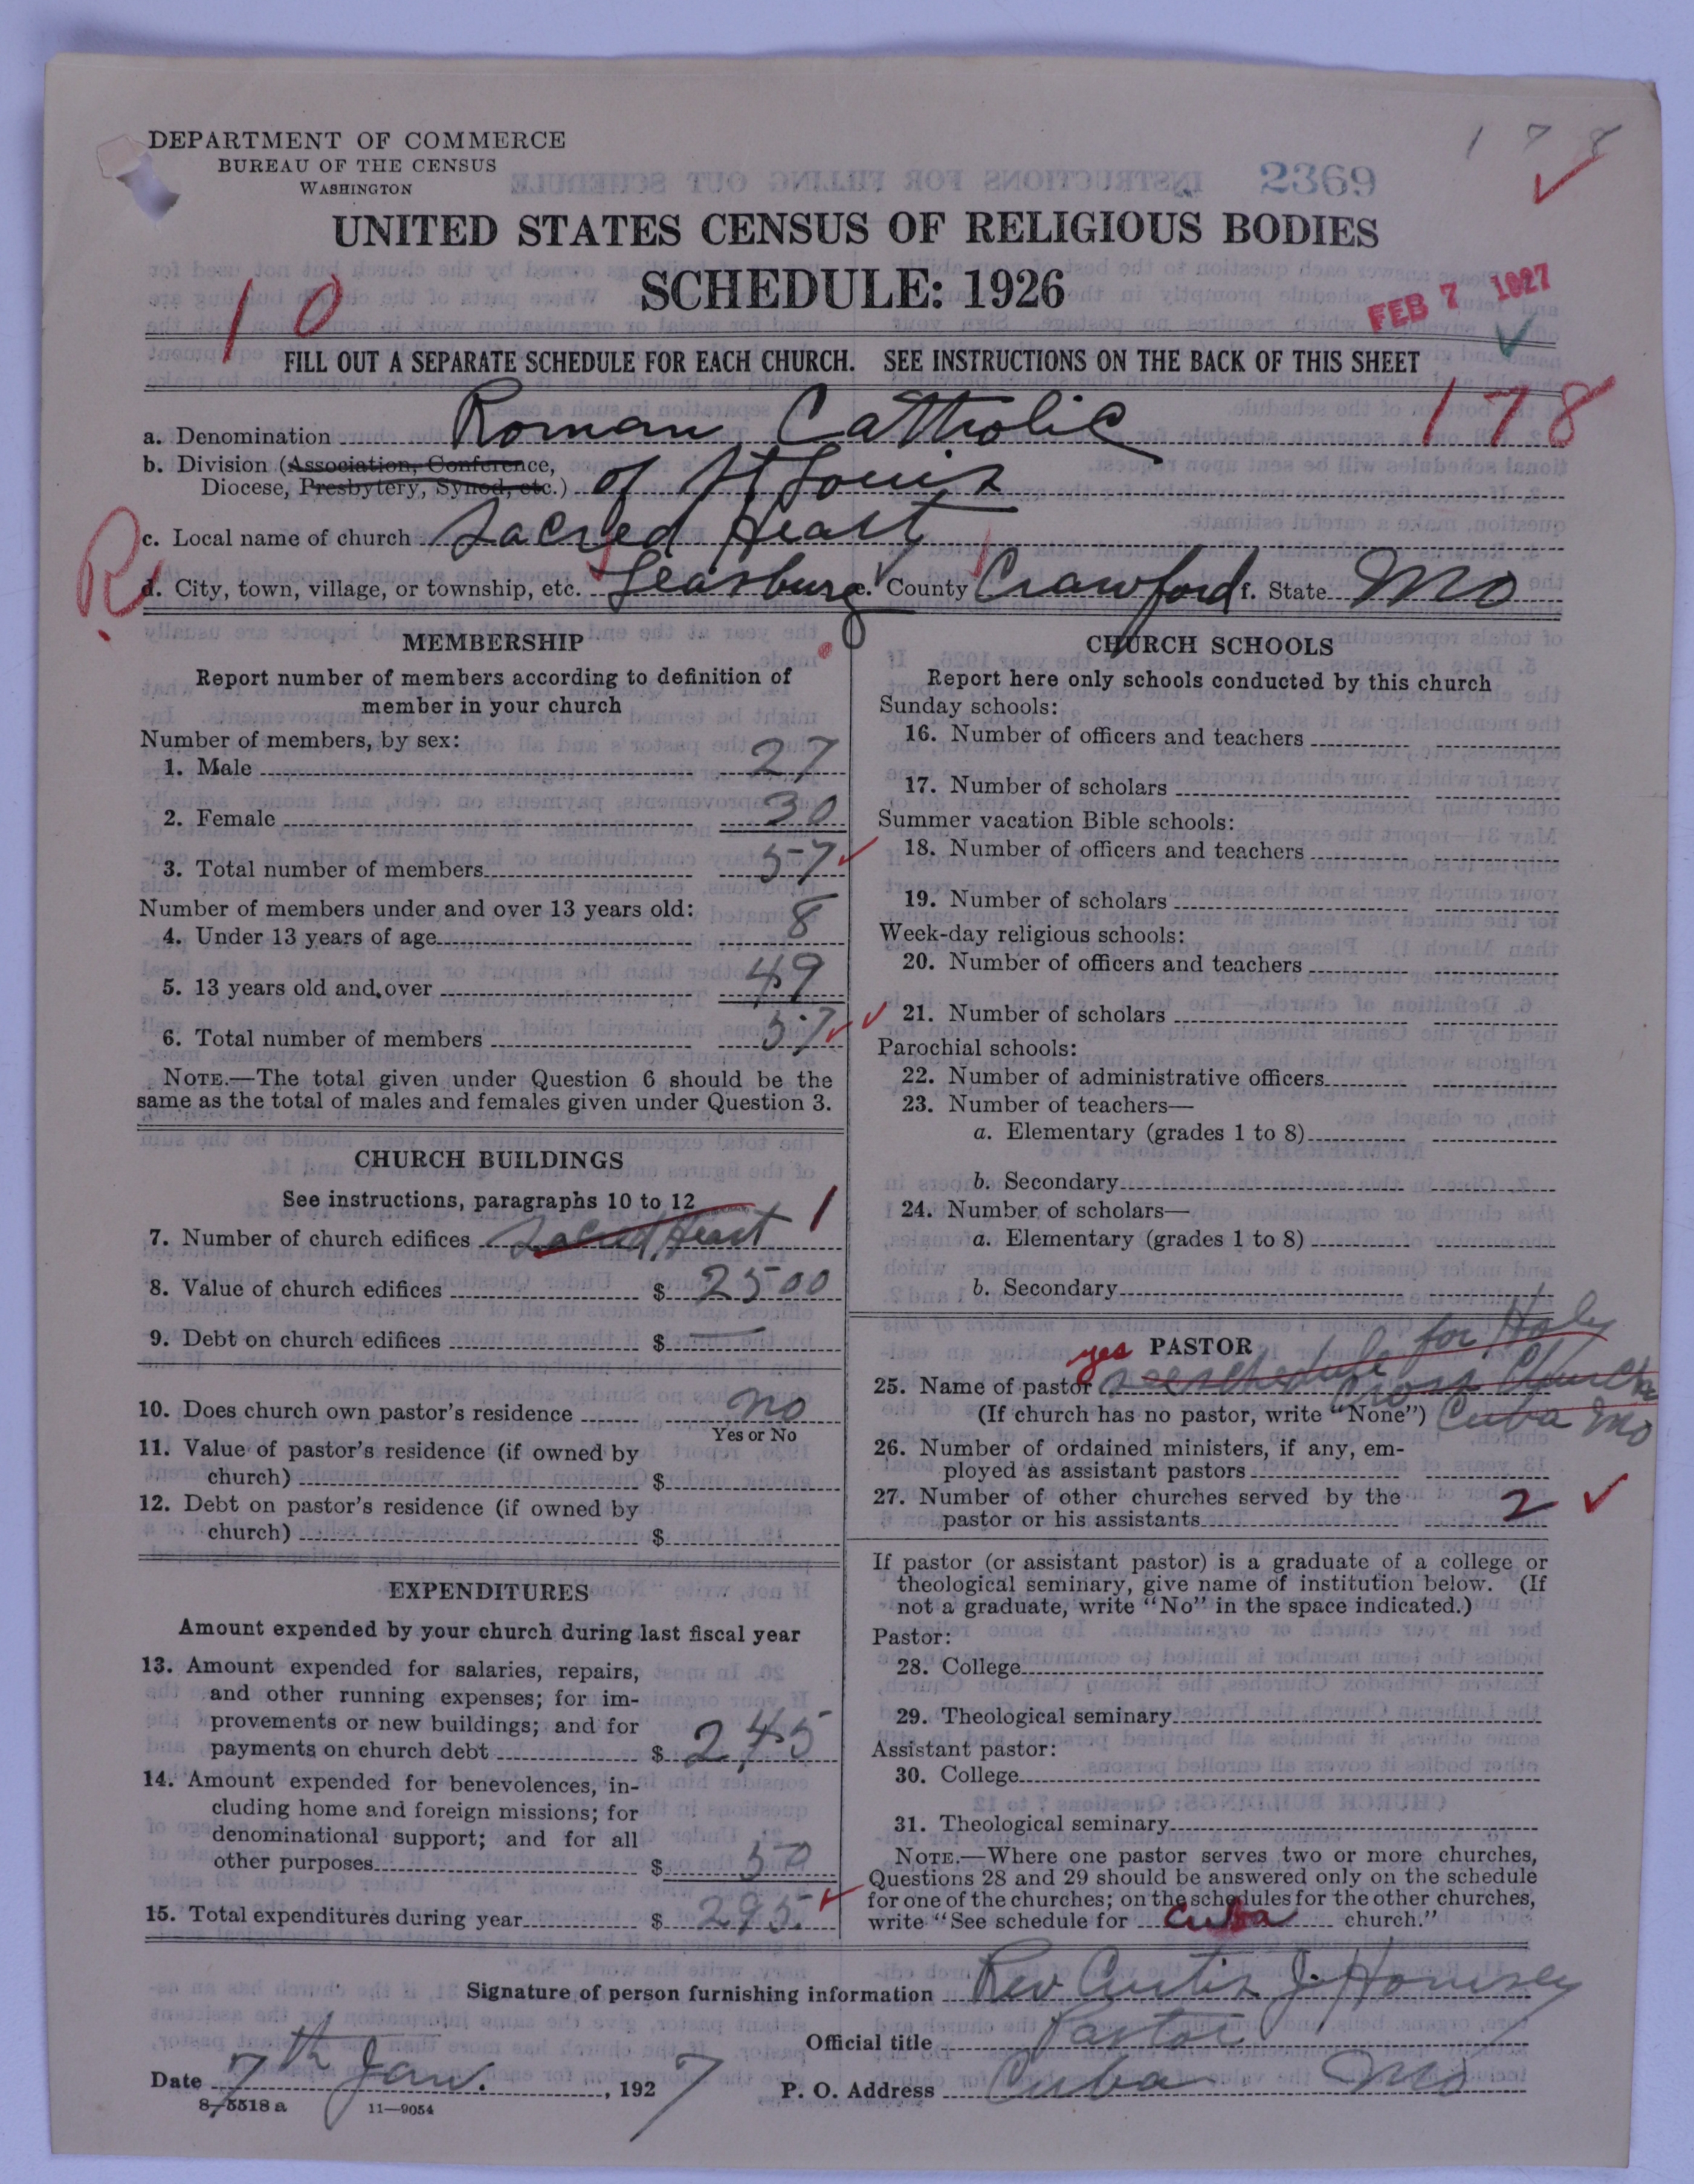 1 7 8
DEPARTMENT OF COMMERCE
BUREAU OF THE CENSUS
WASHINGTON
2369
UNITED STATES CENSUS OF RELIGIOUS BODIES
SCHEDULE: 1926
10
FEB 7 1927
FILL OUT A SEPARATE SCHEDULE FOR EACH CHURCH. SEE INSTRUCTIONS ON THE BACK OF THIS SHEET
a. Denomination Roman Catholic 178
b. Division (Association, Conference,
Diocese, Presbytery, Synod, etc.) of St Louis
c. Local name of church Sacred Heart
R
d. City, town, village, or township, etc. Leasburg e. County Crawford f. State Mo
MEMBERSHIP
Report number of members according to definition of
member in your church
Number of members, by sex:
1. Male 27
2. Female 30
3. Total number of members 57
Number of members under and over 13 years old:
4. Under 13 years of age 8
5. 13 years old and over 49
6. Total number of members 57
NOTE.—The total given under Question 6 should be the
same as the total of males and females given under Question 3.
CHURCH BUILDINGS
See instructions, paragraphs 10 to 12
7. Number of church edifices Sacred Heart 1
8. Value of church edifices $ 2500
9. Debt on church edifices $ —
10. Does church own pastor's residence no
Yes or No
11. Value of pastor's residence (if owned by
church) $
12. Debt on pastor's residence (if owned by
church) $
EXPENDITURES
Amount expended by your church during last fiscal year
13. Amount expended for salaries, repairs,
and other running expenses; for im-
provements or new buildings; and for
payments on church debt $ 245
14. Amount expended for benevolences, in-
cluding home and foreign missions; for
denominational support; and for all
other purposes $ 50
15. Total expenditures during year $ 295.
CHURCH SCHOOLS
Report here only schools conducted by this church
Sunday schools:
16. Number of officers and teachers
17. Number of scholars
Summer vacation Bible schools:
18. Number of officers and teachers
19. Number of scholars
Week-day religious schools:
20. Number of officers and teachers
21. Number of scholars
Parochial schools:
22. Number of administrative officers
23. Number of teachers—
a. Elementary (grades 1 to 8)
b. Secondary
24. Number of scholars—
a. Elementary (grades 1 to 8)
b. Secondary
PASTOR
yes
25. Name of pastor see schedule for Holy
Cross Church
(If church has no pastor, write "None") Cuba Mo
26. Number of ordained ministers, if any, em-
ployed as assistant pastors
27. Number of other churches served by the
pastor or his assistants 2
If pastor (or assistant pastor) is a graduate of a college or
theological seminary, give name of institution below. (If
not a graduate, write "No" in the space indicated.)
Pastor:
28. College
29. Theological seminary
Assistant pastor:
30. College
31. Theological seminary
NOTE.—Where one pastor serves two or more churches,
Questions 28 and 29 should be answered only on the schedule
for one of the churches; on the schedules for the other churches,
write "See schedule for Cuba church."
Signature of person furnishing information Rev Curtis J.
Official title Pastor
Date 7th Jan., 1927 P. O. Address Cuba Mo
8-5518 a 11—9054